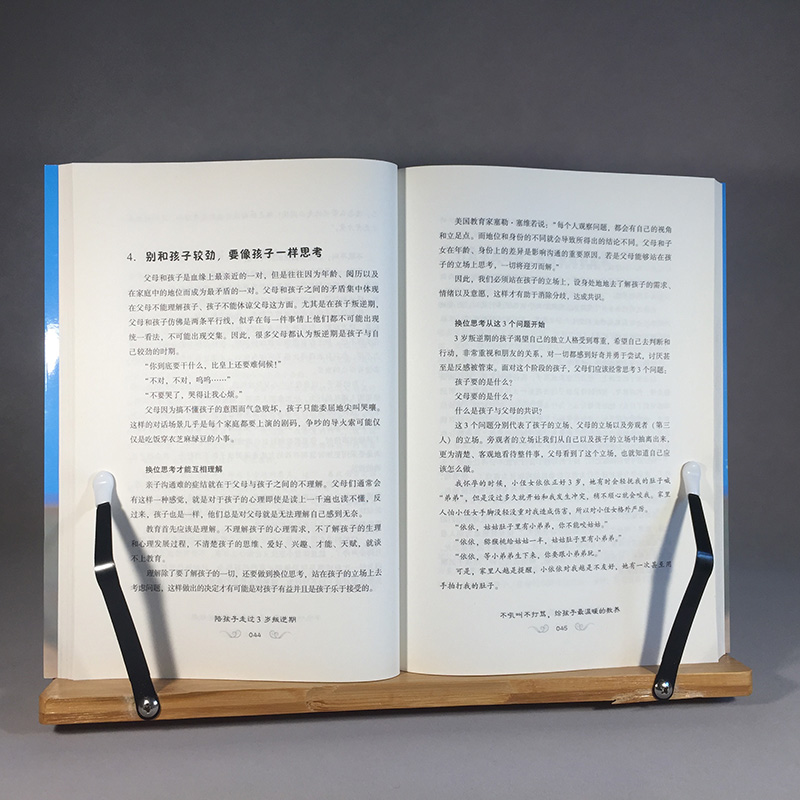 4. 别和孩子较劲，要像孩子一样思考
父母和孩子是血缘上最亲近的一对，但是往往因为年龄、阅历以及
在家庭中的地位而成为最矛盾的一对。父母和孩子之间的矛盾集中体现
在父母不能理解孩子、孩子不能体谅父母这方面。尤其是在孩子叛逆期，
父母和孩子仿佛是两条平行线，似乎在每一件事情上他们都不可能出现
统一看法，不可能出现交集。因此，很多父母都认为叛逆期是孩子与自
己较劲的时期。
“你到底要干什么，比皇上还要难伺候！”
“不对，不对，呜呜……”
“不要哭了，哭得让我心烦。”
父母因为搞不懂孩子的意图而气急败坏，孩子只能委屈地尖叫哭嚷。
这样的对话场景几乎是每个家庭都要上演的剧码，争吵的导火索可能仅
仅是吃饭穿衣芝麻绿豆的小事。
换位思考才能互相理解
亲子沟通难的症结就在于父母与孩子之间的不理解。父母们通常会
有这样一种感觉，就是对于孩子的心理即使是读上一千遍也读不懂，反
过来，孩子也是一样，他们总是对父母就是无法理解自己感到无奈。
教育首先应该是理解。不理解孩子的心理需求，不了解孩子的生理
和心理发展过程，不清楚孩子的思维、爱好、兴趣、才能、天赋，就谈
不上教育。
理解除了要了解孩子的一切，还要做到换位思考，站在孩子的立场上去
考虑问题，这样做出的决定才有可能是对孩子有益并且是孩子乐于接受的。
陪孩子走过3岁叛逆期
044
美国教育家塞勒·塞维若说：“每个人观察问题，都会有自己的视角
和立足点。而地位和身份的不同就会导致所得出的结论不同。父母和子
女在年龄、身份上的差异是影响沟通的重要原因。若是父母能够站在孩
子的立场上思考，一切将迎刃而解。”
因此，我们必须站在孩子的立场上，设身处地地去了解孩子的需求、
情绪以及意愿，这样才有助于消除分歧，达成共识。
换位思考从这3个问题开始
3岁叛逆期的孩子渴望自己的独立人格受到尊重，希望自己去判断和
行动，非常重视和朋友的关系，对一切都感到好奇并勇于尝试，讨厌甚
至是反感被管束。面对这个阶段的孩子，父母们应该经常思考3个问题：
孩子要的是什么？
父母要的是什么？
什么是孩子与父母的共识？
这3个问题分别代表了孩子的立场、父母的立场以及旁观者（第三
人）的立场。旁观者的立场让我们从自己以及孩子的立场中抽离出来，
更为清楚、客观地看待整件事，父母看到了这个立场，也就知道自己应
该怎么做。
我怀孕的时候，小侄女依依正好3岁，她有时会轻抚我的肚子喊
“弟弟”，但是没过多久就开始和我发生冲突，稍不顺心就会咬我。家里
人怕小侄女手脚没轻没重对我造成伤害，所以对小侄女格外严厉。
“依依，姑姑肚子里有小弟弟，你不能咬姑姑。”
“依依，猕猴桃给姑姑一半，姑姑肚子里有小弟弟。”
“依依，等小弟弟生下来，你要跟小弟弟比。”
可是，家里人越是提醒，小依依对我越是不友好，她有一次甚至用
手拍打我的肚子。
不吼叫不打骂，给孩子最温暖的教养
045